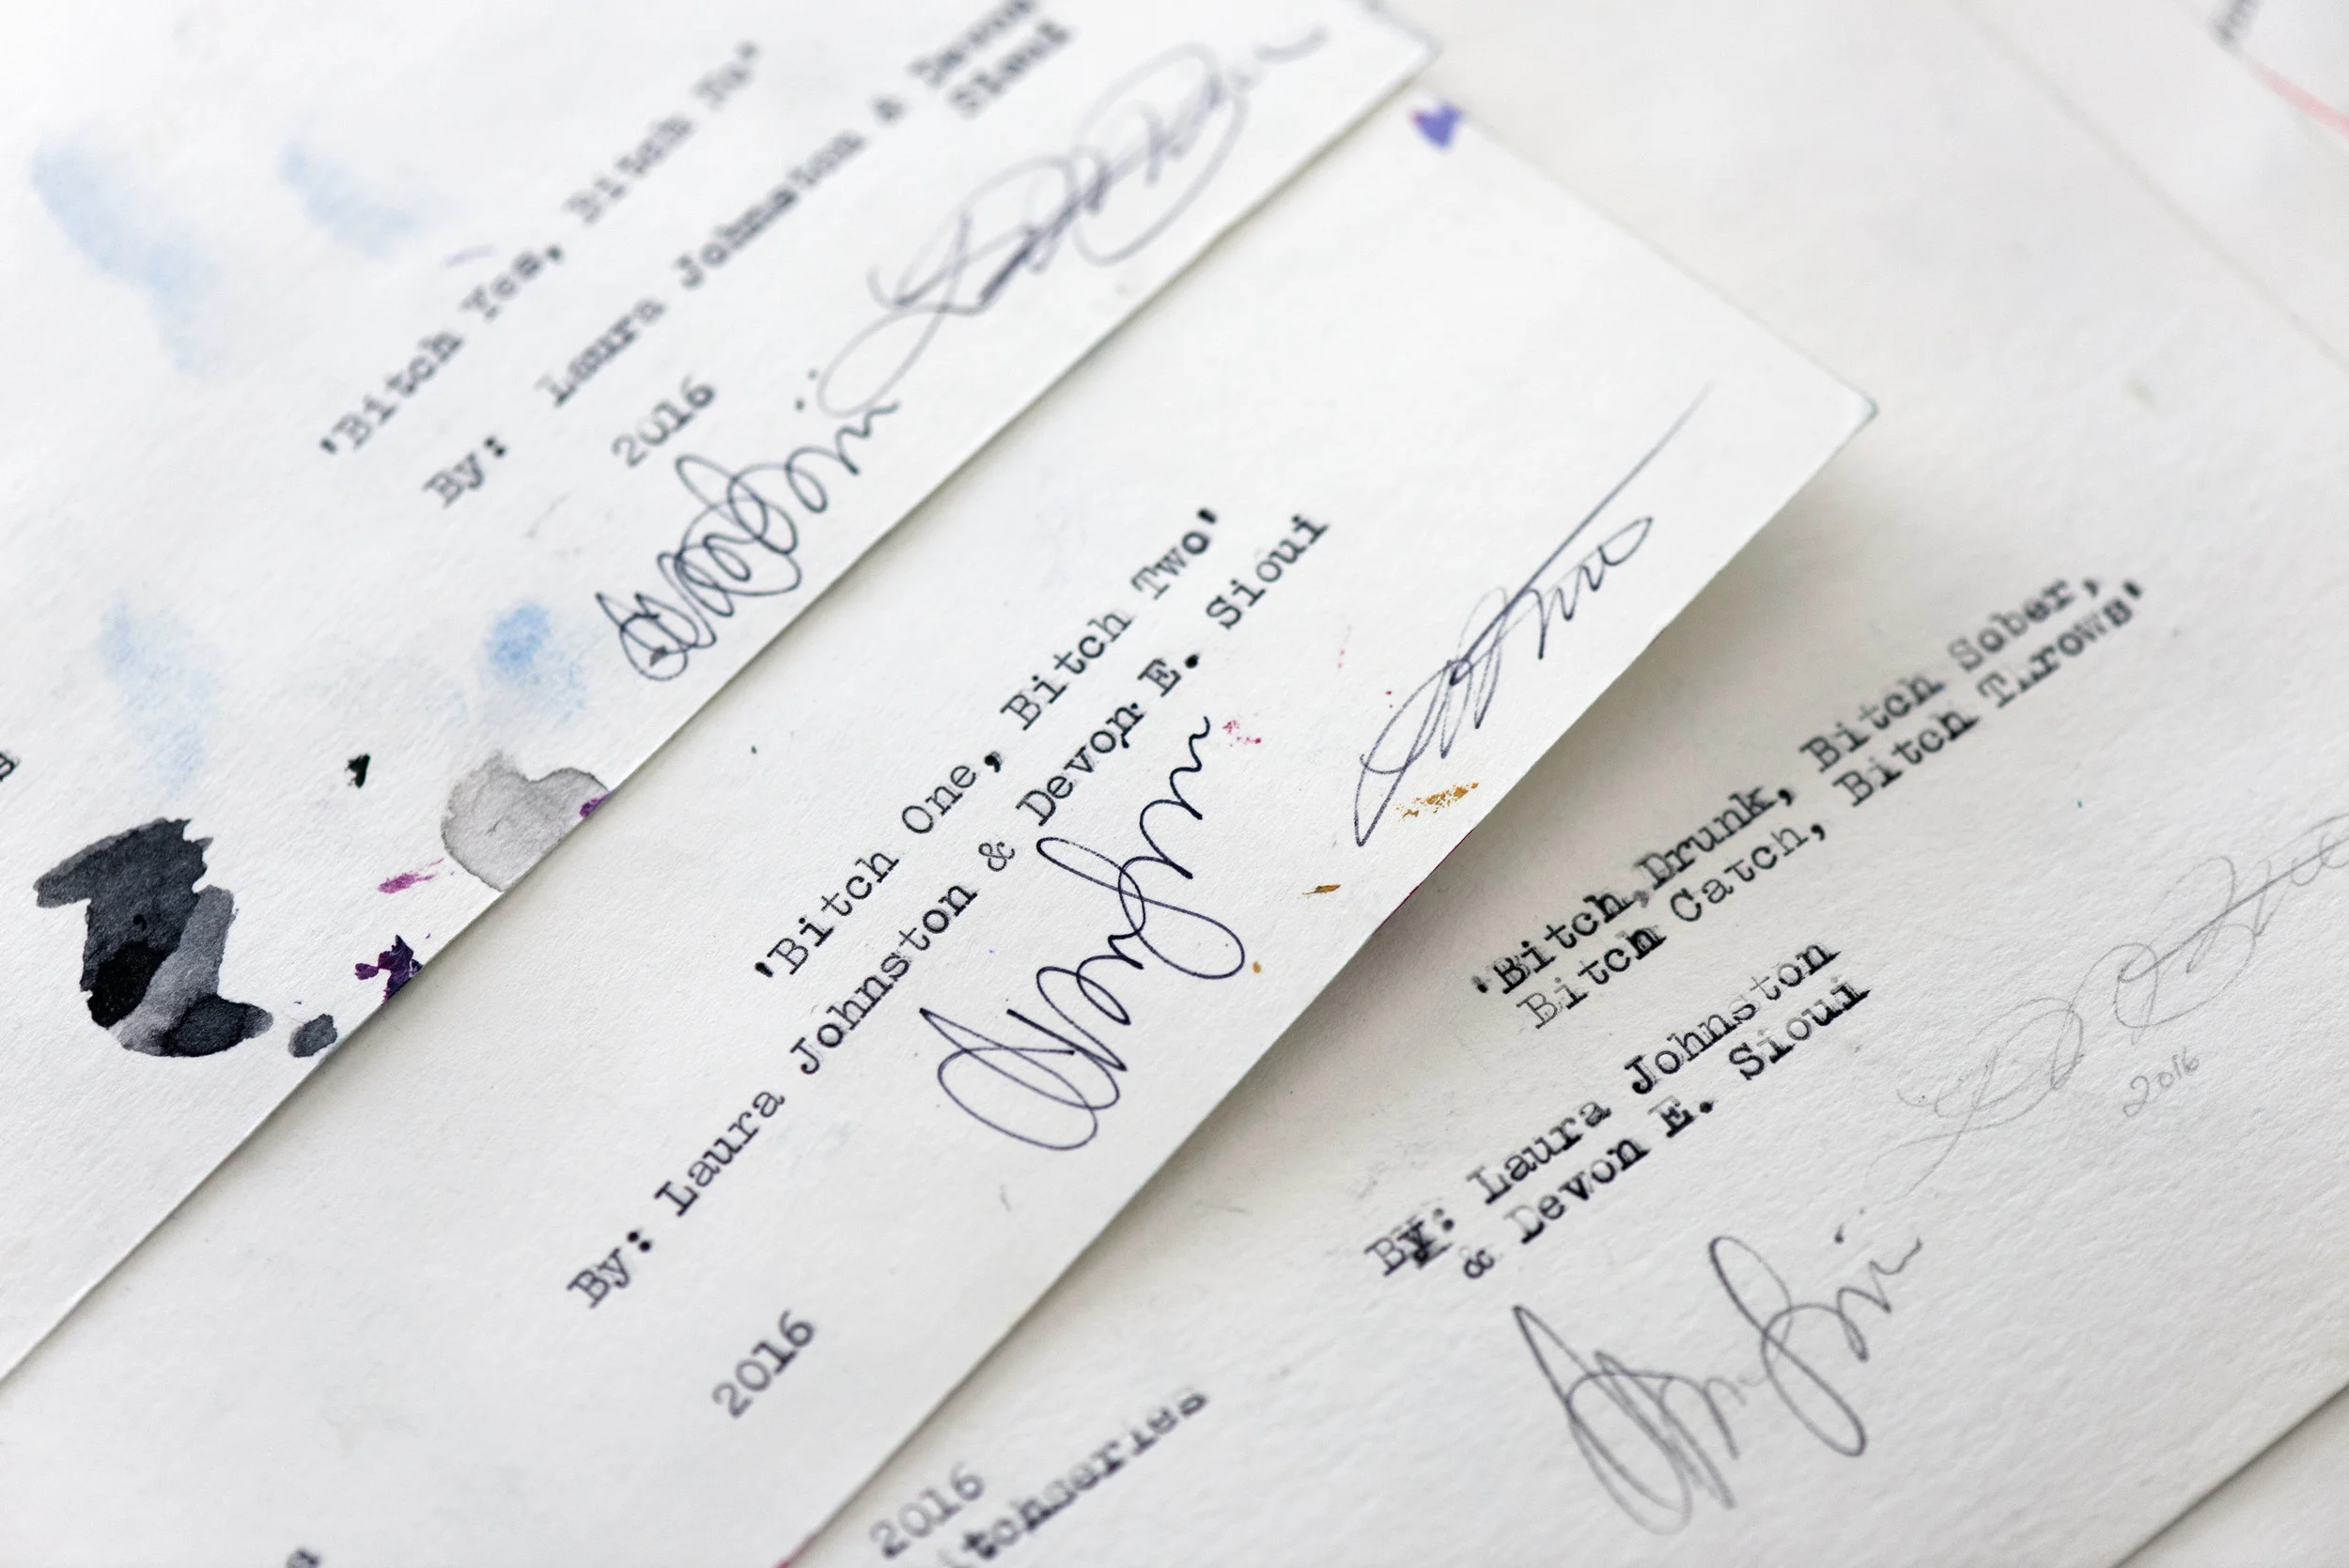 'Bitch Yes, Bitch No'
By: Laura Johnston & Devon
Sioui
2016
'Bitch One, Bitch Two'
By: Laura Johnston & Devon E. Sioui
2016
'Bitch Drunk, Bitch Sober,
Bitch Catch, Bitch Throws'
By: Laura Johnston
& Devon E. Sioui
2016
2016
itchseries